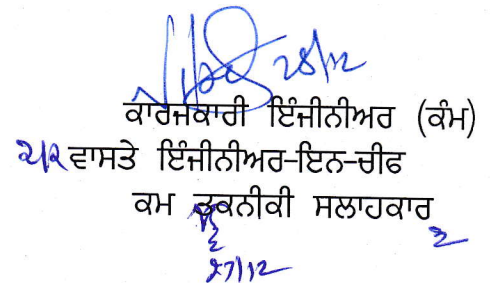 28/12
ਕਾਰਜਕਾਰੀ ਇੰਜੀਨੀਅਰ (ਕੰਮ)
ਵਾਸਤੇ ਇੰਜੀਨੀਅਰ-ਇਨ-ਚੀਫ
ਕਮ ਤਕਨੀਕੀ ਸਲਾਹਕਾਰ
27/12